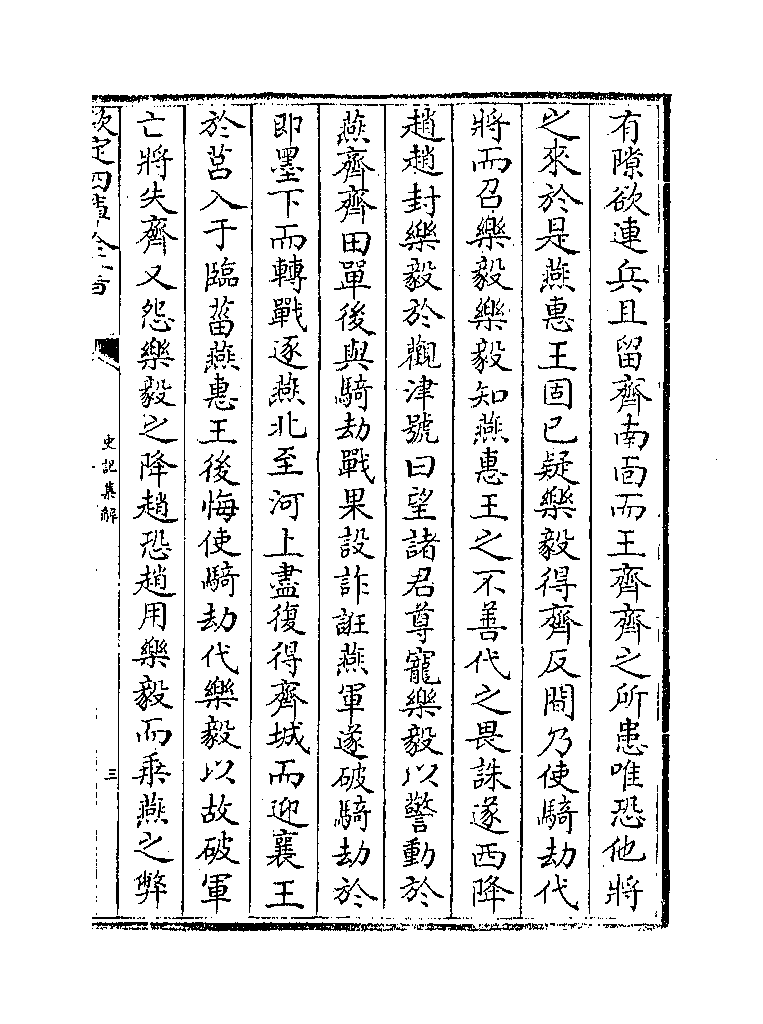 有隙欲連兵且留齊南面而王齊齊之所患唯恐他將
之來於是燕惠王固已疑樂毅得齊反間乃使騎劫代
將而召樂毅樂毅知燕惠王之不善代之畏誅遂西降
趙趙封樂毅於觀津號曰望諸君尊寵樂毅以警動於
燕齊齊田單後與騎劫戰果設詐誑燕軍遂破騎劫於
即墨下而轉戰逐燕北至河上盡復得齊城而迎襄王
於莒入于臨菑燕惠王後悔使騎劫代樂毅以故破軍
亡將失齊又怨樂毅之降趙恐趙用樂毅而乗燕之弊
欽定四庫全書
史記集解
三